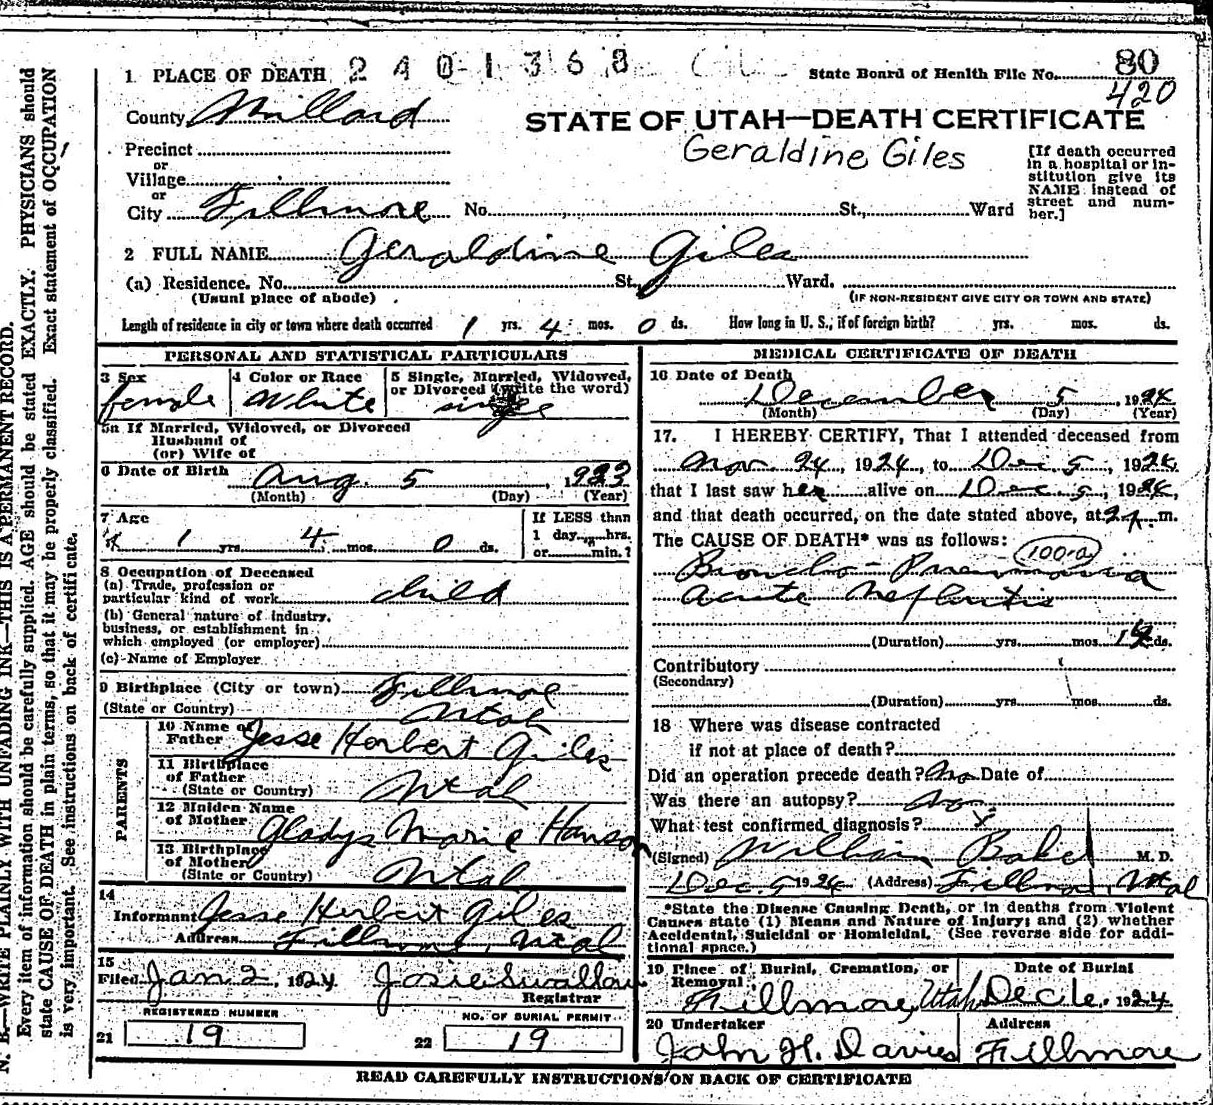 1 PLACE OF DEATH 2 4 0 - 1 3 6 8
State Board of Health File No. 80
420
County Millard
STATE OF UTAH—DEATH CERTIFICATE
Geraldine Giles
Precinct
or
Village
or
City Fillmore No. St., Ward
[If death occurred
in a hospital or in-
stitution give its
NAME instead of
street and num-
ber.]
2 FULL NAME Geraldine Giles
(a) Residence. No. St. Ward.
(Usual place of abode) (IF NON-RESIDENT GIVE CITY OR TOWN AND STATE)
Length of residence in city or town where death occurred 1 yrs. 4 mos. 0 ds. How long in U. S., if of foreign birth? yrs. mos. ds.
PERSONAL AND STATISTICAL PARTICULARS
3 Sex
female
4 Color or Race
White
5 Single, Married, Widowed,
or Divorced (write the word)
single
5a If Married, Widowed, or Divorced
Husband of
(or) Wife of
6 Date of Birth Aug. 5, 1923
(Month) (Day) (Year)
7 Age
1 yrs. 4 mos. 0 ds.
If LESS than
1 day, hrs.
or min.?
8 Occupation of Deceased
(a) Trade, profession or
particular kind of work child
(b) General nature of industry,
business, or establishment in
which employed (or employer)
(c) Name of Employer
9 Birthplace (City or town) Fillmore
(State or Country) Utah
PARENTS
10 Name of
Father Jesse Herbert Giles
11 Birthplace
of Father
(State or Country) Utah
12 Maiden Name
of Mother Gladys Marie Hanson
13 Birthplace
of Mother
(State or Country) Utah
14
Informant Jesse Herbert Giles
Address Fillmore, Utah
15
Filed Jan 2, 1924 Josie Swallow
Registrar
REGISTERED NUMBER
21 19
NO. OF BURIAL PERMIT
22 19
MEDICAL CERTIFICATE OF DEATH
16 Date of Death
December 5, 1924
(Month) (Day) (Year)
17. I HEREBY CERTIFY, That I attended deceased from
Nov. 24, 1924, to Dec. 5, 1924,
that I last saw her alive on Dec. 5, 1924,
and that death occurred, on the date stated above, at m.
The CAUSE OF DEATH* was as follows: 100-a
Broncho-Pneumonia
Acute Nefhritis
(Duration) yrs. mos. ds.
Contributory
(Secondary)
(Duration) yrs. mos. ds.
18 Where was disease contracted
if not at place of death?
Did an operation precede death? No Date of
Was there an autopsy? No.
What test confirmed diagnosis?
(Signed) William Baker M. D.
Dec. 5 1924 (Address) Fillmore Utah
*State the Disease Causing Death, or in deaths from Violent
Causes state (1) Means and Nature of Injury; and (2) whether
Accidental, Suicidal or Homicidal. (See reverse side for addi-
tional space.)
19 Place of Burial, Cremation, or
Removal.
Fillmore, Utah
Date of Burial
Dec 6, 1924
20 Undertaker
John H. Davies
Address
Fillmore
READ CAREFULLY INSTRUCTIONS ON BACK OF CERTIFICATE
N. B.—WRITE PLAINLY WITH UNFADING INK—THIS IS A PERMANENT RECORD.
Every item of information should be carefully supplied. AGE should be stated EXACTLY. PHYSICIANS should
state CAUSE OF DEATH in plain terms, so that it may be properly classified. Exact statement of OCCUPATION
is very important. See instructions on back of certificate.